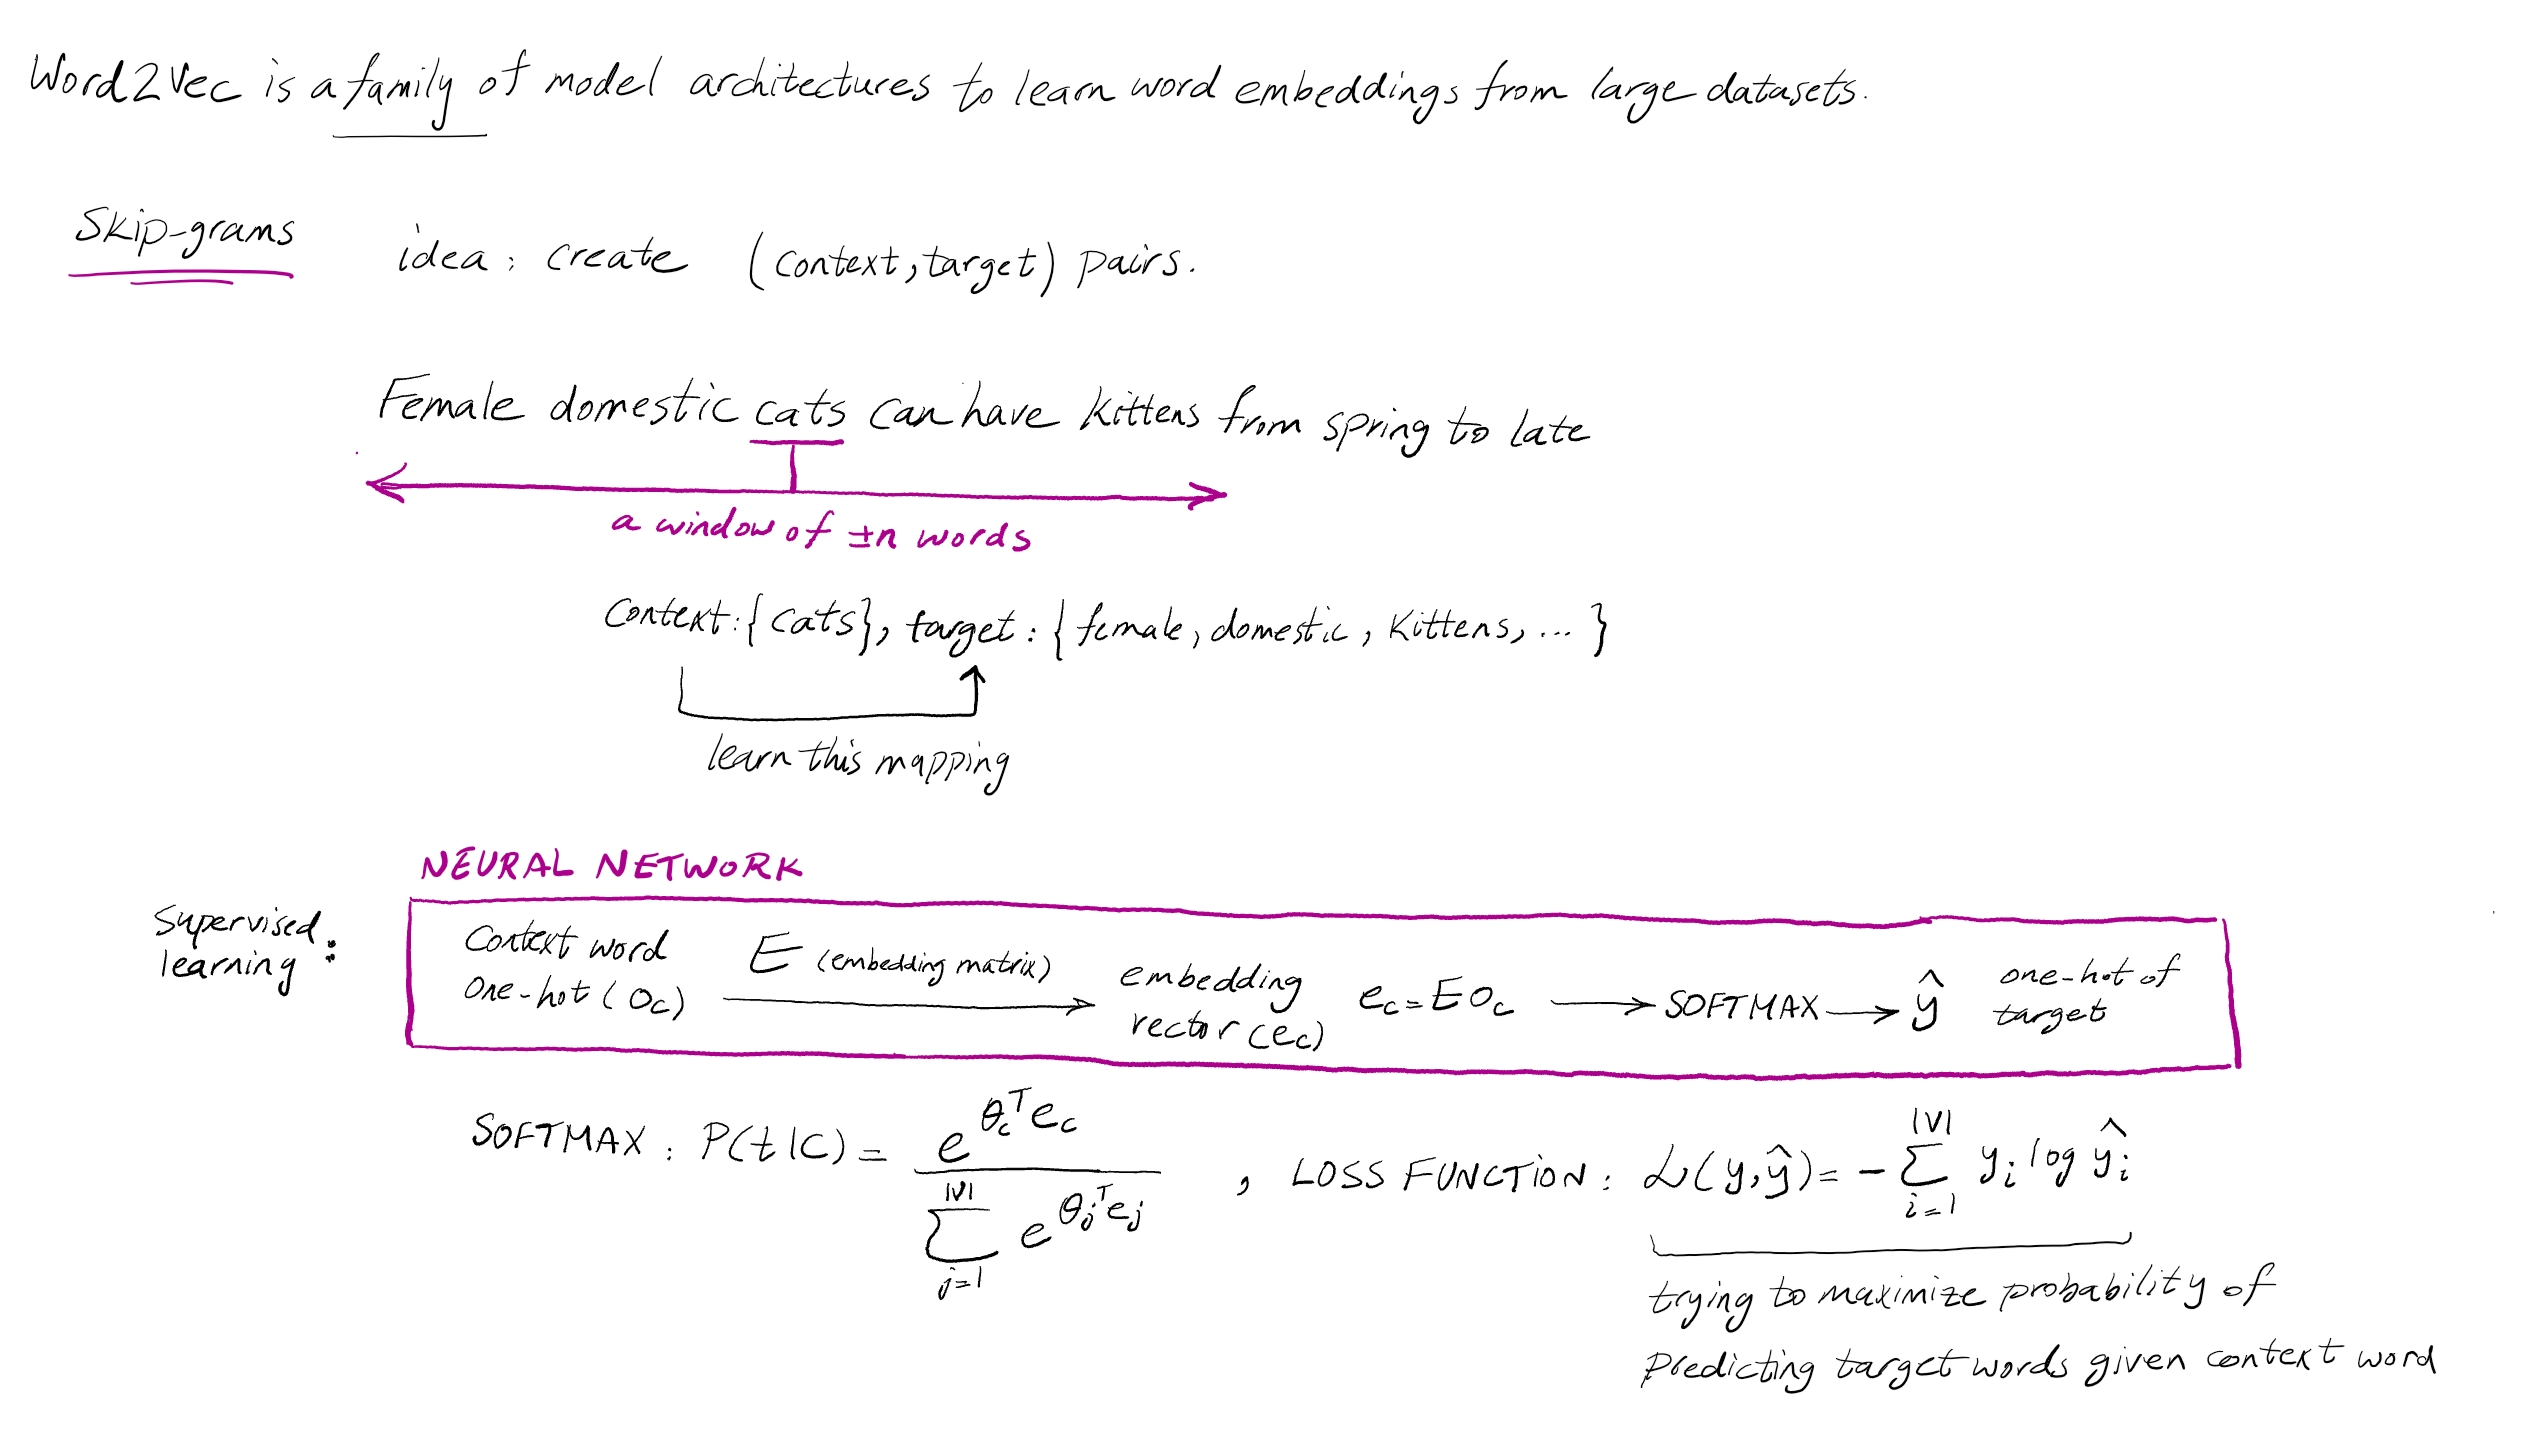 Word2Vec is a family of model architectures to learn word embeddings from large datasets.
Skip-grams idea: create (context, target) pairs.
Female domestic cats can have kittens from spring to late
a window of ±n words
Context: {cats}, target: {female, domestic, kittens, ...}
learn this mapping
NEURAL NETWORK
Supervised learning:
Context word
one-hot (Oc)
E (embedding matrix)
embedding
vector (ec)
ec = E Oc
SOFTMAX
ŷ
one-hot of
target
SOFTMAX: P(t|C) = e^{θc^T ec} / Σ_{j=1}^{|V|} e^{θj^T ej}, LOSS FUNCTION: L(y,ŷ) = - Σ_{i=1}^{|V|} yi log ŷi
trying to maximize probability of
predicting target words given context word